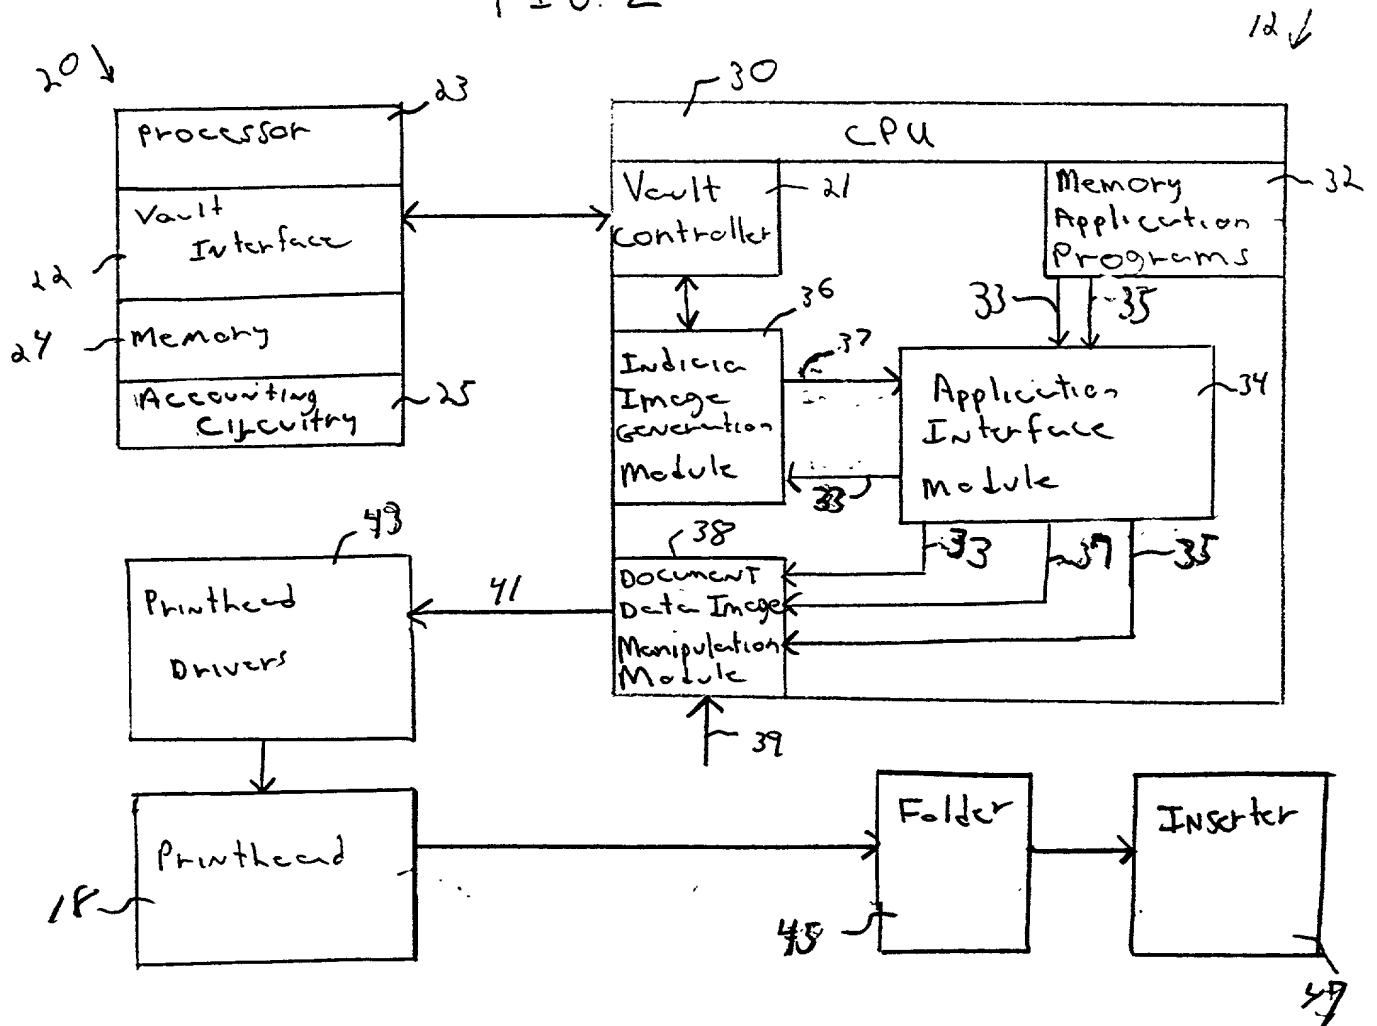 FIG. 2
12
20
23
Processor
Vault
Interface
22
24
Memory
Accounting
Circuitry
25
30
CPU
Vault
Controller
21
Memory
Application
Programs
32
33
35
36
Indicia
Image
Generation
Module
37
33
Application
Interface
Module
34
38
33
37
35
Document
Data Image
Manipulation
Module
39
41
43
Printhead
Drivers
Printhead
18
Folder
45
Inserter
47